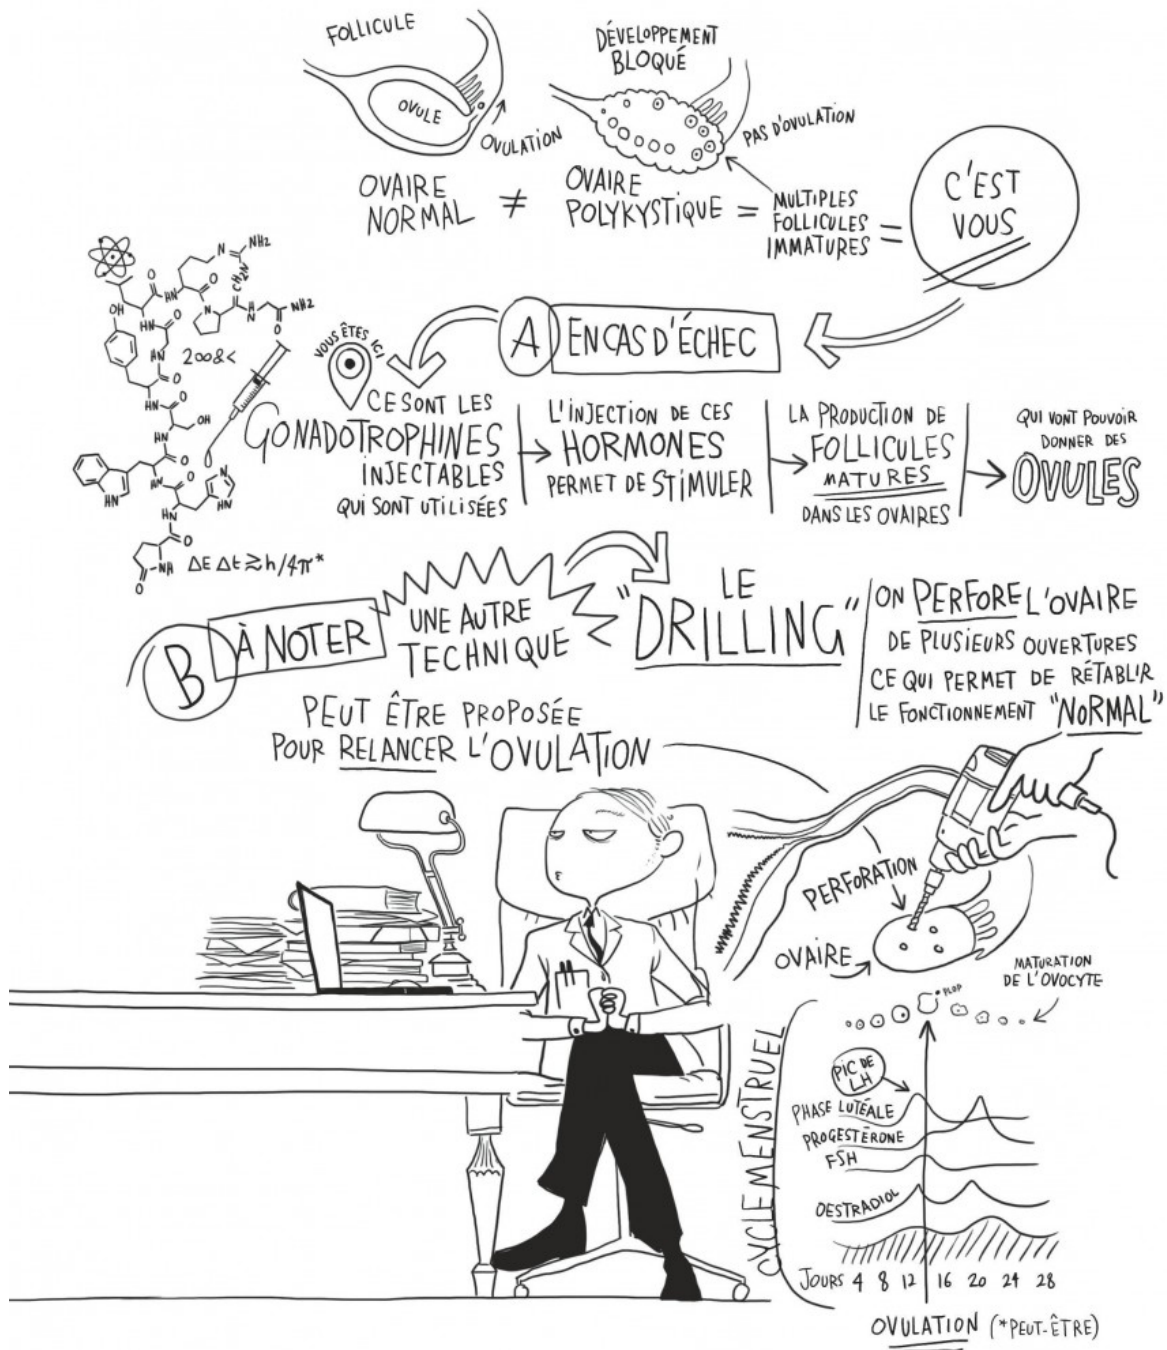 FOLLICULE
OVULE
OVULATION
OVAIRE
NORMAL
≠
DÉVELOPPEMENT
BLOQUÉ
PAS D'OVULATION
OVAIRE
POLYKYSTIQUE
=
MULTIPLES
FOLLICULES
IMMATURES
=
C'EST
VOUS
A
EN CAS D'ÉCHEC
N
NH2
CH2N
O
HN
O
N
O
H
N
O
NH2
OH
HN
O
200&<
HN
O
HN
O
OH
HN
O
HN
O
N
HN
HN
O
NH
O
ΔE Δt ≥ h/4π*
VOUS ÊTES ICI
CE SONT LES
GONADOTROPHINES
INJECTABLES
QUI SONT UTILISÉES
L'INJECTION DE CES
HORMONES
PERMET DE STIMULER
LA PRODUCTION DE
FOLLICULES
MATURES
DANS LES OVAIRES
QUI VONT POUVOIR
DONNER DES
OVULES
B
À NOTER
UNE AUTRE
TECHNIQUE
LE
"DRILLING"
ON PERFORE L'OVAIRE
DE PLUSIEURS OUVERTURES
CE QUI PERMET DE RÉTABLIR
LE FONCTIONNEMENT "NORMAL"
PEUT ÊTRE PROPOSÉE
POUR RELANCER L'OVULATION
PERFORATION
OVAIRE
MATURATION
DE L'OVOCYTE
*PLOP
CYCLE MENSTRUEL
PIC DE
LH
PHASE LUTÉALE
PROGESTÉRONE
FSH
OESTRADIOL
JOURS 4 8 12 16 20 24 28
OVULATION (*PEUT-ÊTRE)